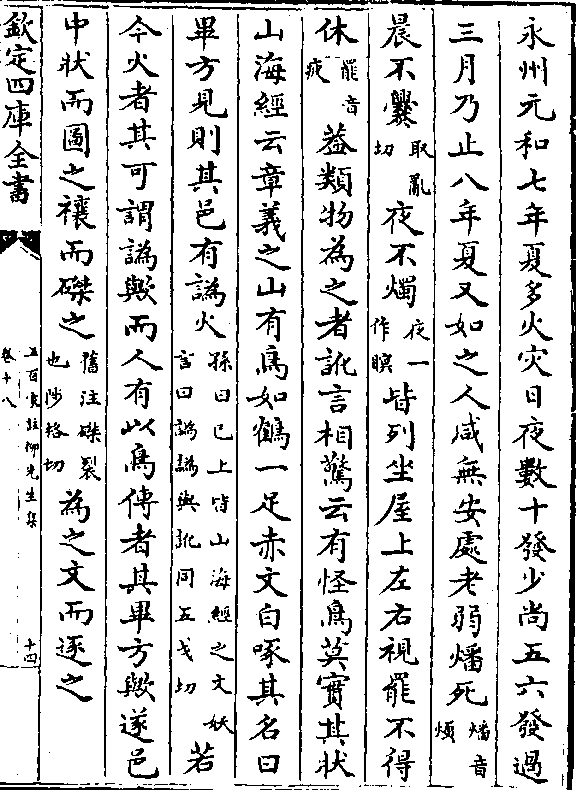 永州元和七年夏多火灾日夜數十發少尚五六發過
三月乃止八年夏又如之人咸無安處老弱燔死燔音煩
晨不爨取亂切夜不燭夜一作暝皆列坐屋上左右視罷不得
休罷音疲葢類物為之者訛言相驚云有怪鳥莫實其狀
山海經云章義之山有鳥如鶴一足赤文白喙其名曰
畢方見則其邑有譌火孫曰已上皆山海經之文妖言曰譌譌與訛同五戈切若
今火者其可謂譌歟而人有以鳥傳者其畢方歟遂邑
中狀而圖之禳而磔之舊注磔裂也陟格切為之文而逐之
欽定四庫全書
五百家註柳先生集
卷十八
十四